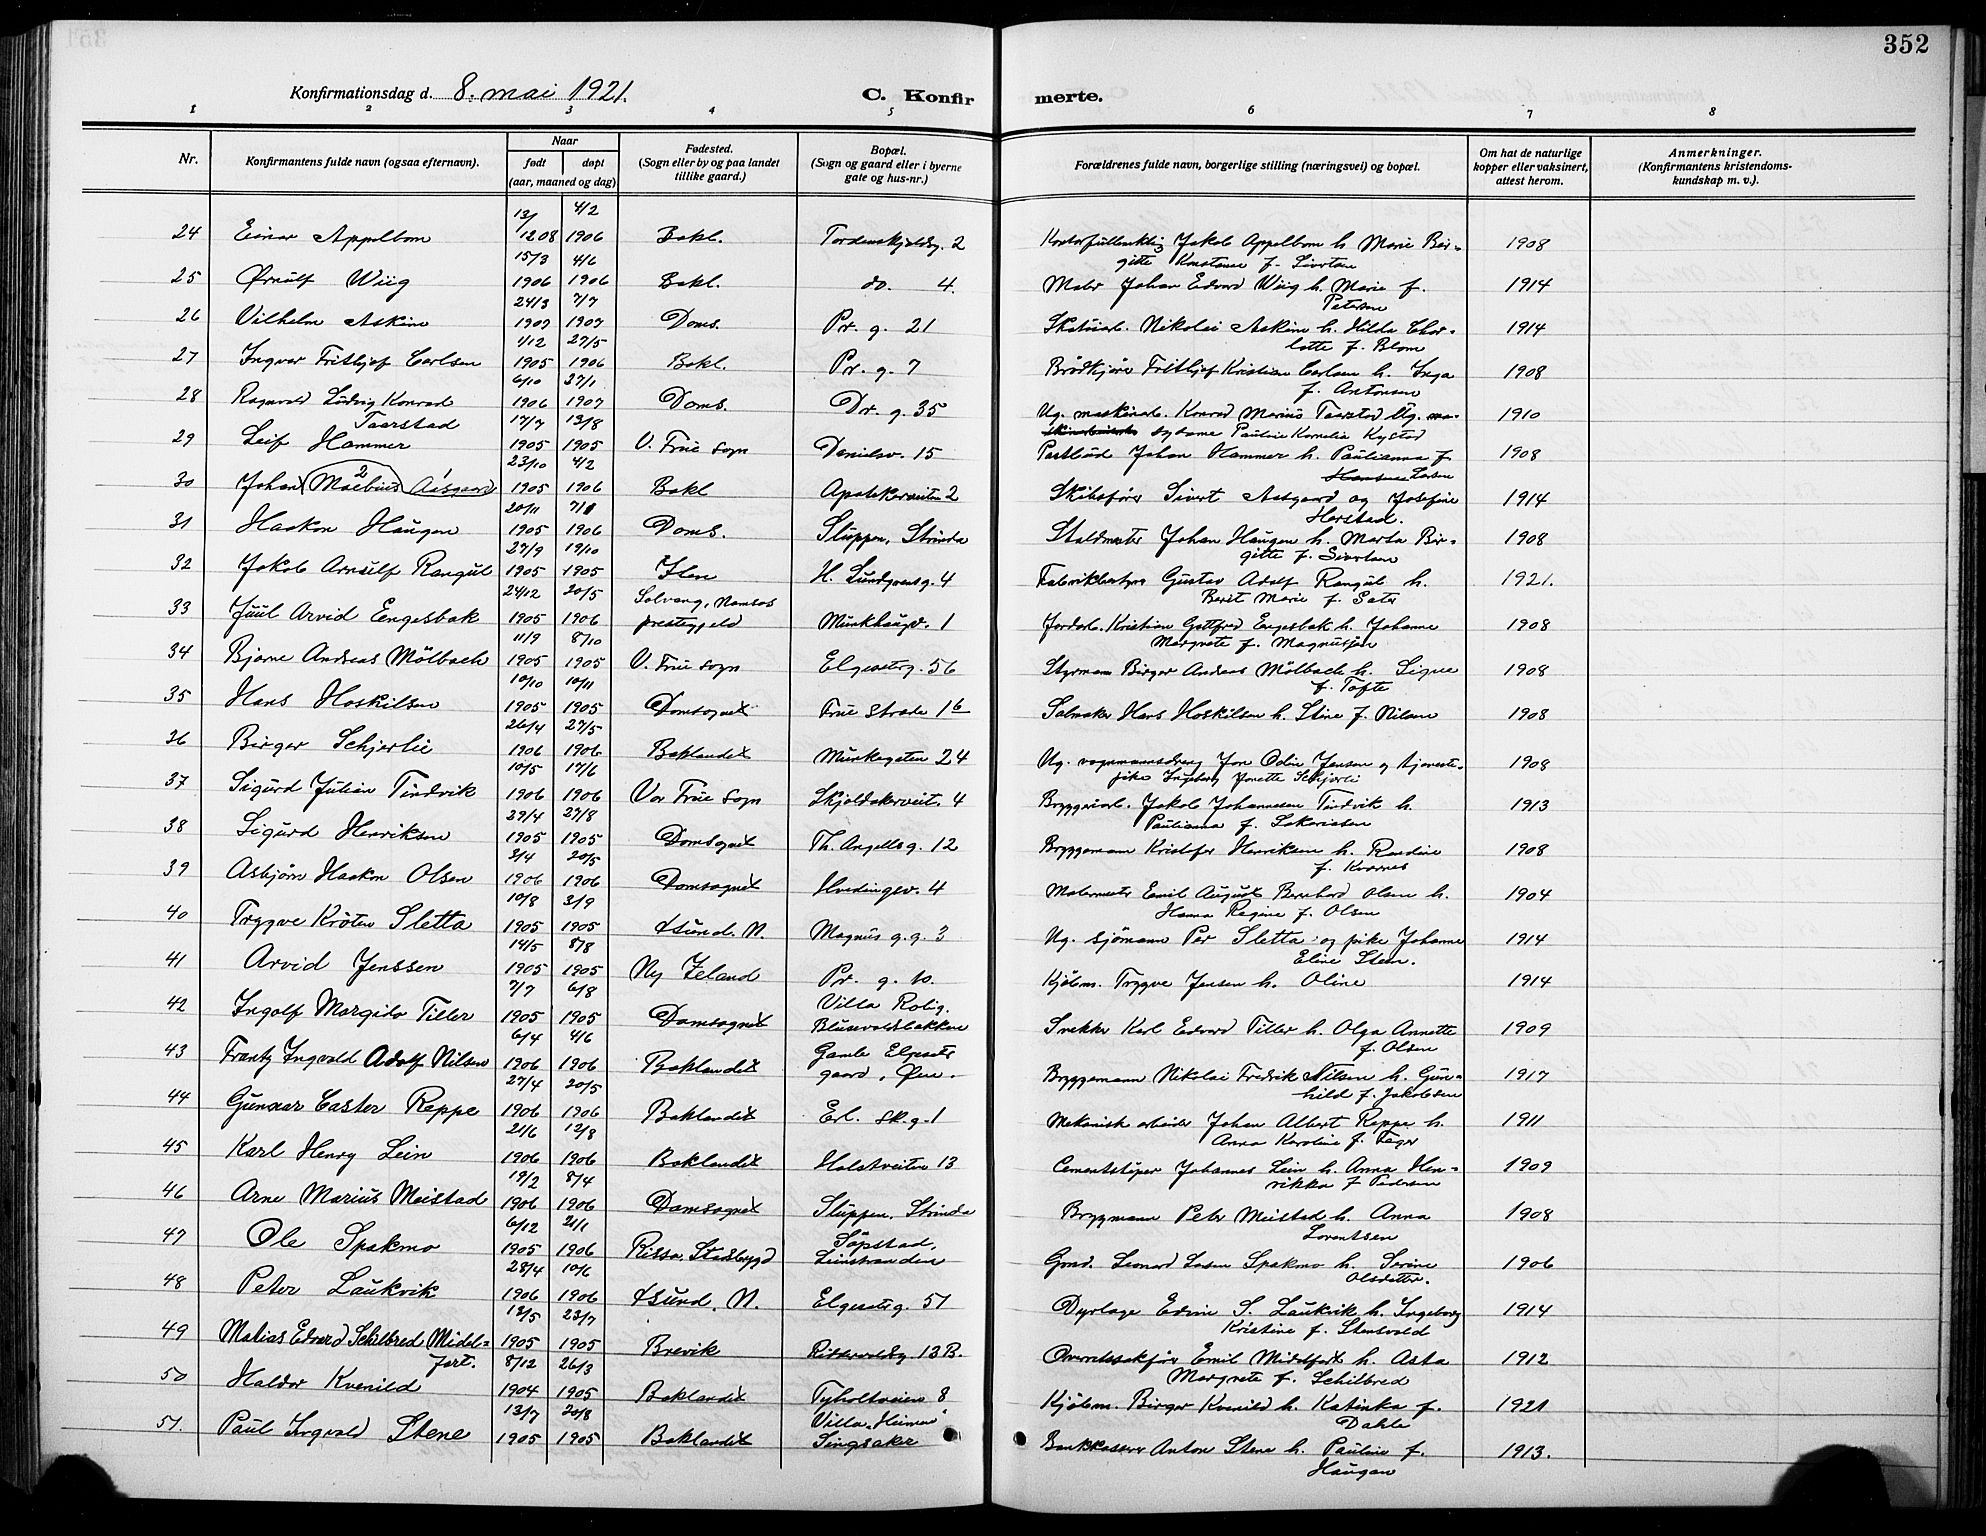 352
Konfirmationsdag d. 8. mai 1921.
C. Konfirmerte.
1 2 3 4 5 6 7 8
Nr.
Konfirmantens fulde navn (ogsaa efternavn).
Naar
født døpt
(aar, maaned og dag)
Fødested.
(Sogn eller by og paa landet
tillike gaard.)
Bopæl.
(Sogn og gaard eller i byerne
gate og hus-nr.)
Forældrenes fulde navn, borgerlige stilling (næringsvei) og bopæl.
Om hat de naturlige
kopper eller vaksinert,
attest herom.
Anmerkninger.
(Konfirmantens kristendoms-
kundskap m. v.).
24 Einar Appelbom 1906 Bakl. Tordenskjoldsg. 2 Jakob Appelbom h. Marie Bir- 1908
gitte Konstanse f. Sivertsen
15/3 4/6
25 Ørnulf Wiig 1906 1906 Bakl. do. 4. Maler Johan Edvard Wiig h. Marie f. 1914
Petersen
24/3 7/7
26 Vilhelm Askim 1907 1907 Doms. Pr. g. 21 Nikolai Askim h. Hilda Char- 1914
lotte f. Blom
1/12 27/5
27 Ingvar Frithjof Carlsen 1905 1906 Bakl. Pr. g. 7 Brödkjörer Frithjof Kristian Carlsen h. Inga 1908
f. Antonsen
6/10 27/1
28 Ragnvald Ludvig Konrad 1906 1907 Doms. Dr. g. 35 Ug. maskinarb. Konrad Marius Taarstad Ug. 1910
Taarstad sydame Pauline Kornelia Kystad
17/7 13/8
29 Leif Hammer 1905 1905 V. Frue sogn Danielsv. 15 Postbud Johan Hammer h. Paulianna f. 1908
Hansen Larsen
23/10 4/2
30 Johan (Moebius) 2 Aasgaard 1905 1906 Bakl Apotekerveiten 2 Skibsfører Sivert Aasgaard og Josefine 1914
Herstad.
20/11 7/1
31 Haakon Haugen 1905 1906 Doms. Sluppen, Strinda Staldmester Johan Haugen h. Marta Bir- 1908
gitte f. Sivertsen
27/9 19/10
32 Jakob Arnulf Rangul 1905 1905 Ilen H. Lundgrensg. 4 Gustav Adolf Rangul h. 1921.
Berit Marie f. Sater
24/12 20/5
Solvang, Namsos
33 Juul Arvid Engesbak 1905 1906 prestegjeld Munkhaugv. 1 Jordarb. Kristian Gotfred Engesbak h. Johanne 1908
Margrete f. Magnussen
11/9 8/10
34 Bjarne Andreas Mölbach 1905 1905 V. Frue sogn Elgesetrg. 56 Styrmann Birger Andreas Mölbach h. Signe 1908
f. Tofte
10/10 10/11
35 Hans Hoskilsen 1905 1905 Domsognet Frue Strade 1b Salmaker Hans Hoskilsen h. Stine f. Nilsen 1908
26/4 27/5
36 Birger Schjerlie 1906 1906 Baklandet Munkegaten 24 Ug. vognmannsdreng Jon Odin Jensen og tjeneste- 1908
pike Ingeborg Jonette Schjerli
10/5 17/6
37 Sigurd Julian Tindvik 1906 1906 Vor Frue Sogn Skjoldakerveit. 4 Bryggeriarb. Jakob Johannesen Tindvik h. 1913
Paulianna f. Sakariasen
29/4 27/8
38 Sigurd Henriksen 1905 1905 Domsognet Th. Angells g. 12 Bryggemann Kristofer Henriksen h. Randine 1908
f. Kvernes
3/4 20/5
39 Asbjörn Haakon Olsen 1906 1906 Domsognet Hvedingsv. 4 Malermester Emil August Bernhard Olsen h. 1904
Hanna Regine f. Olsen
10/8 3/9
40 Trygve Kröten Sletta 1905 1905 Xsund. N. Magnus g. g. 3 Ug. sjömann Per Sletta og pike Johanne 1914
Eline Stein.
14/5 8/8
41 Arvid Jenssen 1905 1905 Ny Zeland Pr. g. 10. Kjölm. Trygve Jensen h. Oline 1914
7/7 6/8
Villa Rolig.
42 Ingolf Margido Tiller 1905 1905 Domsognet Blusuvoldsbakken Snekker Karl Edvard Tiller h. Olga Annette 1909
f. Olsen
6/4 4/6
Gamle Elgeseter
43 Frantz Ingvald Adolf Nilsen 1906 1906 Baklandet gaard, Øen. Bryggemann Nikolai Fredrik Nilsen h. Gun- 1917
hild f. Jakobsen
27/4 20/5
44 Gunnar Caster Reppe 1906 1906 Baklandet Erl. Sk. g. 1 Mekanisk arbeider Johan Albert Reppe h. 1911
Anna Karoline f. Fager
21/6 12/8
45 Karl Henry Lein 1906 1906 Baklandet Holstveiten 13 Cementstöper Johannes Lein h. Anna Hen- 1909
rikka f. Pedersen
19/2 8/4
46 Arne Marius Meistad 1906 1906 Domsognet Sluppen, Strinda Bryggmann Peter Meistad h. Anna 1908
Lorentsen
6/12 21/1
Söpstad,
47 Ole Spakmo 1905 1906 Rissa, Stadsbygd Leinstranden Gaard. Leonard Larsen Spakmo h. Serine 1906
Olsdatter.
28/4 10/6
48 Peter Laukvik 1906 1906 Xsund, N. Elgesetrg. 51 Dyrlæge Edvin S. Laukvik h. Ingeborg 1914
Kristine f. Stensvold
13/5 23/7
49 Matias Edvard Schilbred Midel= 1905 1905 Brevik Riddervoldsg 13B. Overretssakfører Emil Midelfart h. Asta 1912
fart. Margrete f. Schilbred
8/12 26/3
50 Haldor Kvenild 1904 1905 Baklandet Tyholtveien 8 Kjölm. Birger Kvenild h. Katinka f. 1921
Dahle
13/7 20/8
Villa Heimen
51. Paul Ingvald Stene 1905 1905 Baklandet Singsaker Bankkasserer Anton Stene h. Pauline f. 1913.
Haugan